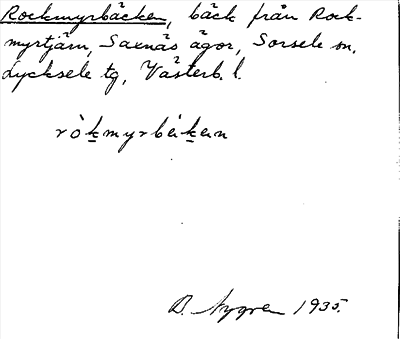 Rockmyrbäcken, bäck från Rock-
myrtjärn, Saxnäs ägor, Sorsele sn,
Lycksele tg, Västerb. l.
ròkmyrbèkɐn
D. Nygren 1935.